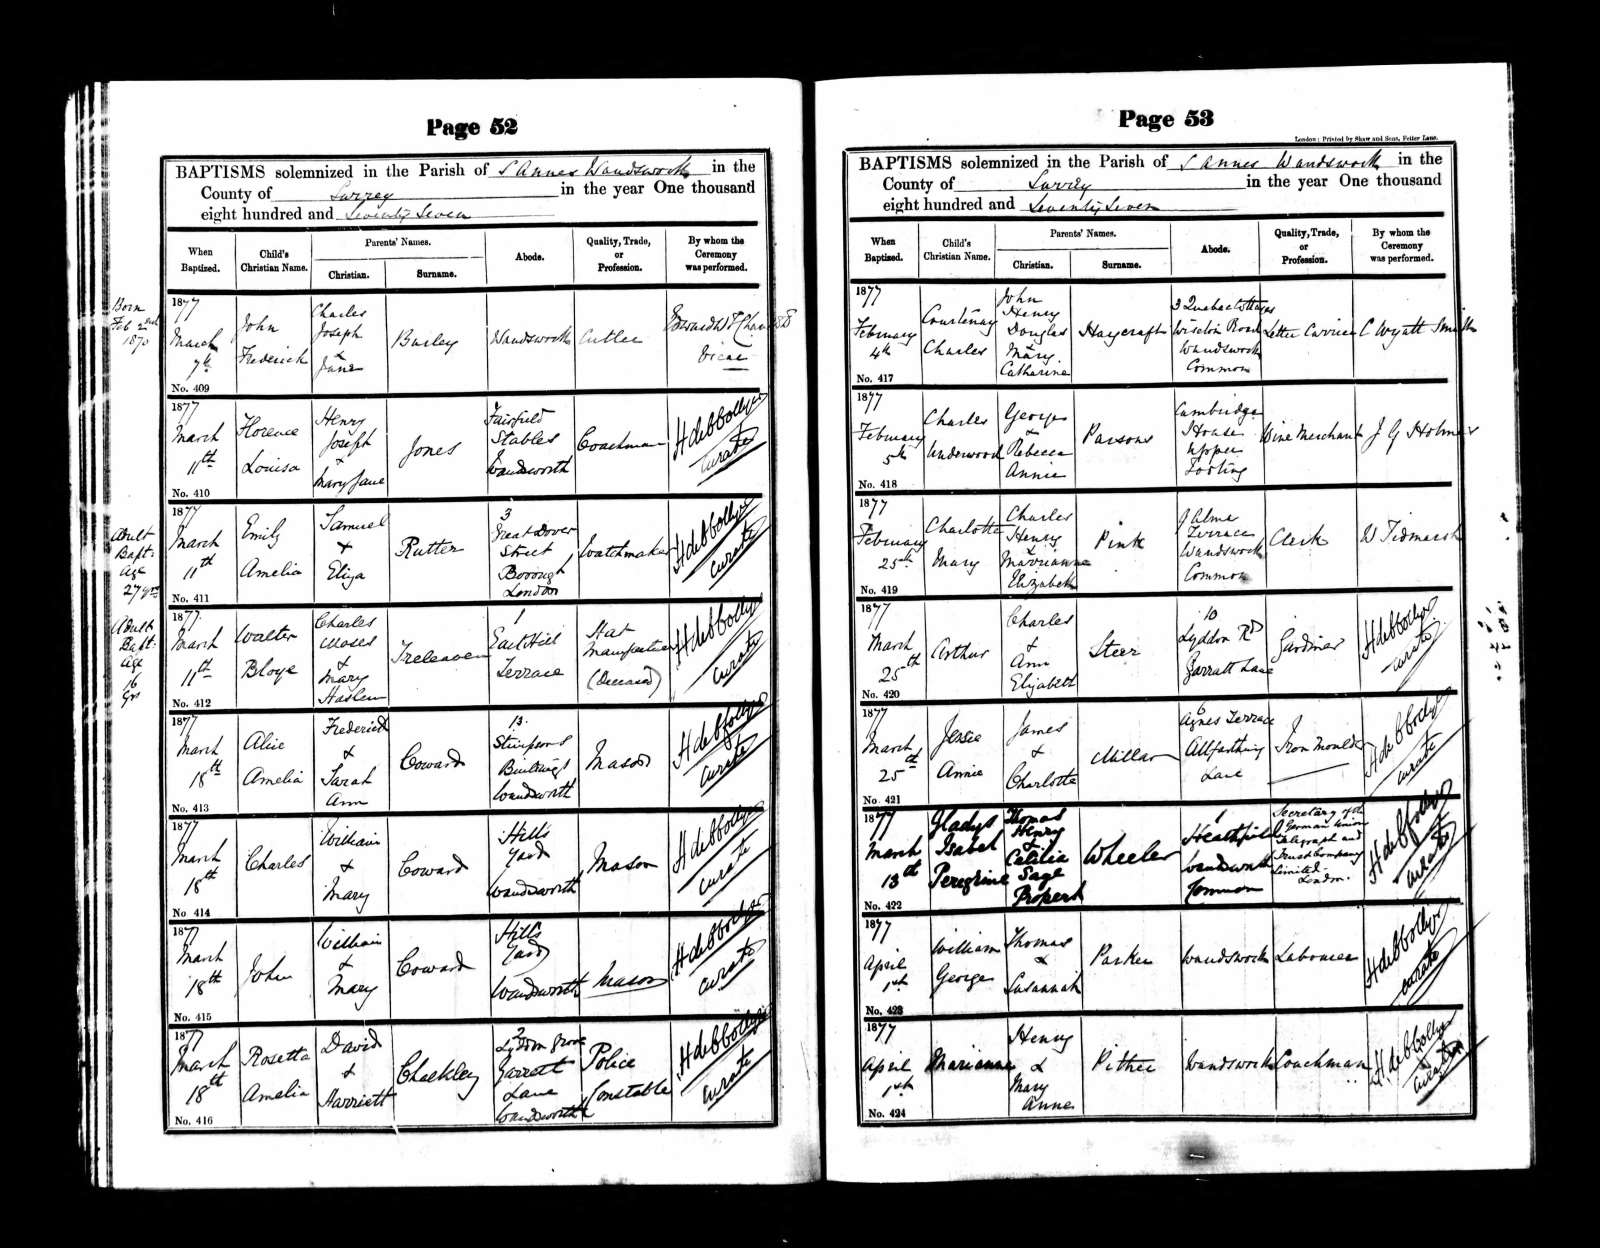 Page 52
BAPTISMS solemnized in the Parish of S Annes Wandsworth in the
County of Surrey in the year One thousand
eight hundred and Seventy Seven
When Baptized.
Child's Christian Name.
Parents' Names.
Christian.
Surname.
Abode.
Quality, Trade, or Profession.
By whom the Ceremony was performed.
Born
Feb 2nd
1870
1877
March
7th
No. 409
John
Frederick
Charles
Joseph
&
Jane
Burley
Wandsworth
Cutler
Vicar
1877
March
11th
No. 410
Florence
Louisa
Henry
Joseph
&
Mary Jane
Jones
Fairfield
Stables
Wandsworth
Coachman
Curate
Adult
Bapt:
Age
27 yrs
1877
March
11th
No. 411
Emily
Amelia
Samuel
&
Eliza
Rutter
3
Great Dover
Street
Borough
London
Watchmaker
Curate
Adult
Bapt:
Age
16
Yrs
1877
March
11th
No. 412
Walter
Bloye
Charles
Moses
&
Mary
Haslem
Treleaven
1
East Hill
Terrace
Hat
Manufacturer
(Deceased)
Curate
1877
March
18th
No. 413
Alice
Amelia
Frederick
&
Sarah
Ann
Coward
13.
Stimpsons
Buildings
Wandsworth
Mason
Curate
1877
March
18th
No. 414
Charles
William
&
Mary
Coward
Hills
Yard
Wandsworth
Mason
Curate
1877
March
18th
No. 415
John
William
&
Mary
Coward
Hills
Yard
Wandsworth
Mason
Curate
1877
March
18th
No. 416
Rosetta
Amelia
David
&
Harriett
Chalkley
2
Lydon Grove
Garrett
Lane
Wandsworth
Police
Constable
Curate
Page 53
London: Printed by Shaw and Sons, Fetter Lane.
BAPTISMS solemnized in the Parish of S Annes Wandsworth in the
County of Surrey in the year One thousand
eight hundred and Seventy Seven
When Baptized.
Child's Christian Name.
Parents' Names.
Christian.
Surname.
Abode.
Quality, Trade, or Profession.
By whom the Ceremony was performed.
1877
February
4th
No. 417
Courtenay
Charles
John
Henry
Douglas
&
Mary
Catharine
Haycraft
3 Cottages
Wiseton Road
Wandsworth
Common
Letter Carrier
C Wyatt Smith
1877
February
5th
No. 418
Charles
Underwood
George
&
Rebecca
Annie
Parsons
Cambridge
House
Upper
Tooting
Wine Merchant
J G Holmes
1877
February
25th
No. 419
Charlotte
Mary
Charles
Henry
&
Marrianne
Elizabeth
Pink
Alma
Terrace
Wandsworth
Common
Clerk
W Tidmarsh
1877
March
25th
No. 420
Arthur
Charles
&
Ann
Elizabeth
Steer
10
Lyddon Rd
Garratt Lane
Gardiner
Curate
1877
March
25th
No. 421
Jessie
Annie
James
&
Charlotte
Millar
6
Agnes Terrace
Allfarthing
Lane
Iron Moulder
Curate
1877
March
13th
No. 422
Gladys
Isabel
Peregrine
Thomas
Henry
&
Cecilia
Sage
Propert
Wheeler
1
Heathfield
Wandsworth
Common
Secretary of
German Union
Telegraph and
Trust Company
Limited.
London.
Curate
1877
April
1st
No. 423
William
George
Thomas
&
Susannah
Parker
Wandsworth
Labourer
Curate
1877
April
1st
No. 424
Marianne
Henry
&
Mary
Anne
Pither
Wandsworth
Coachman
Curate